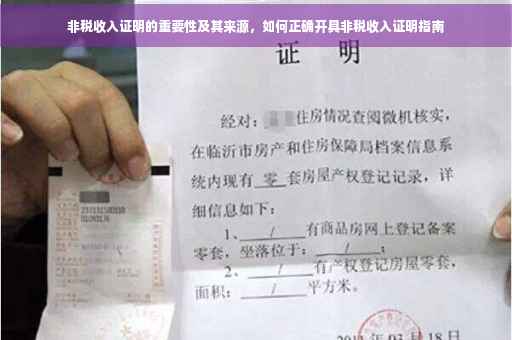 非税收入证明的重要性及其来源，如何正确开具非税收入证明指南
证 明
经对：住房情况查阅微机核实，
在临沂市房产和住房保障局档案信息系
统内现有 零 套房屋产权登记记录，详
细信息如下：
1、 / 有商品房网上登记备案
零套，坐落位于： / ；
2、 / 有产权登记房屋零套，
面积： / 平方米。
03 月 18 日